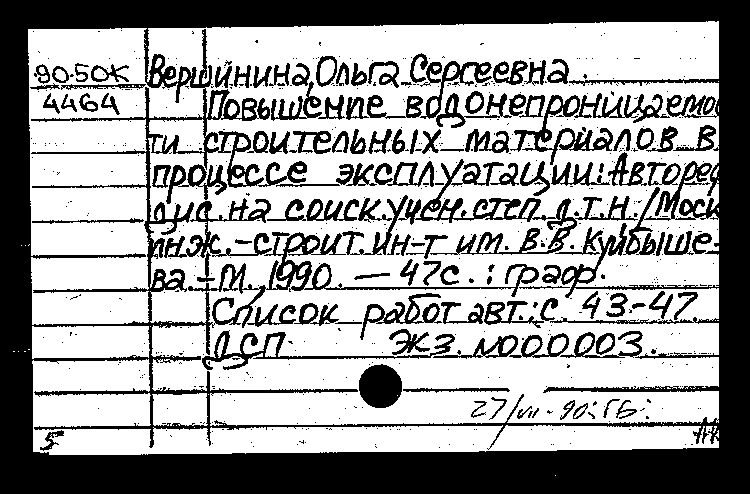 90-50К Вершинина, Ольга Сергеевна.
4464 Повышение водонепроницаемос
ти строительных материалов в
процессе эксплуатации: Автореф.
дис. на соиск. учен. степ. д.т.н. / Моск.
инж.-строит. ин-т им. В.В. Куйбыше-
ва. - М., 1990. — 47с. : граф.
Список работ авт.: с. 43-47.
ДСП Экз. N000003.
27/VII-90: ГБ:
5 АК